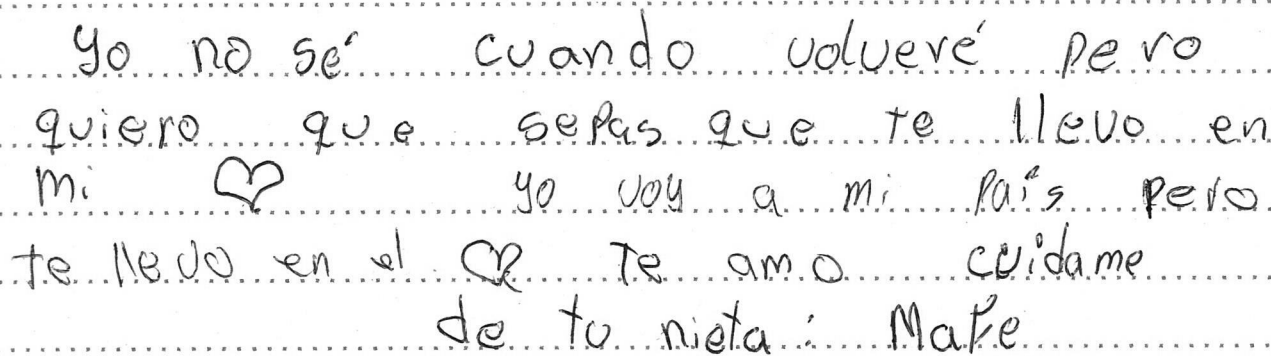 yo no sé cuando volveré pero
quiero que sepas que te llevo en
mi ♡ yo voy a mi país pero
te llevo en el ♡ Te amo cuidame
de tu nieta: Mafe